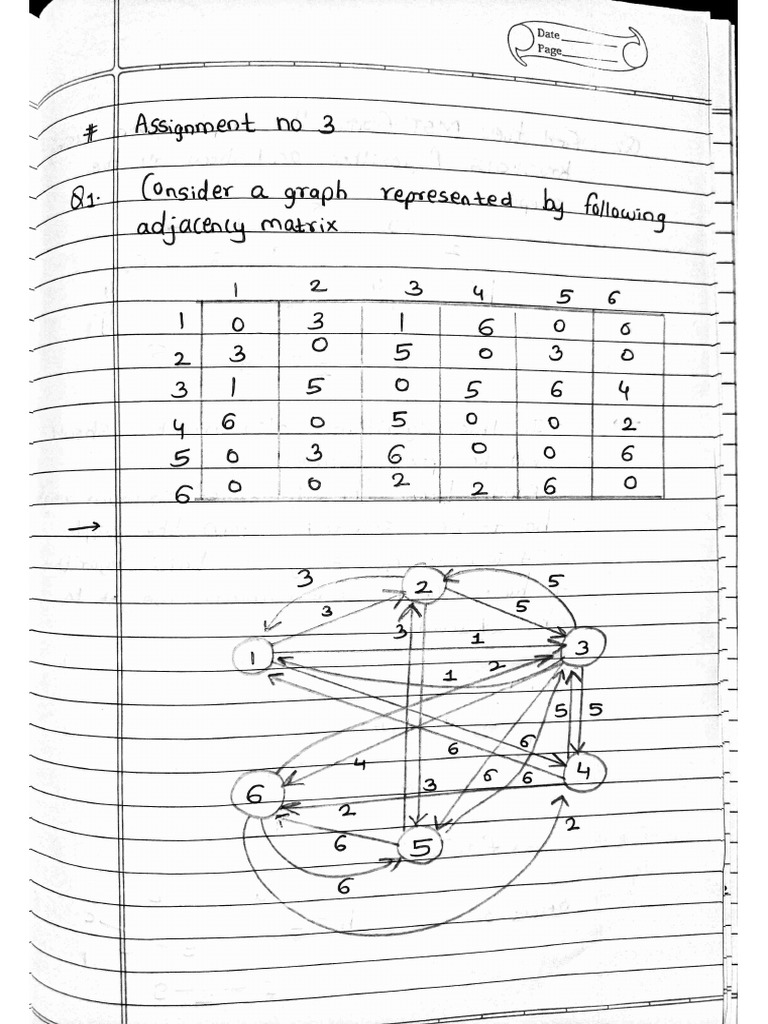 Date
Page
# Assignment no 3
Q1. Consider a graph represented by following
adjacency matrix
1 2 3 4 5 6
1 0 3 1 6 0 0
2 3 0 5 0 3 0
3 1 5 0 5 6 4
4 6 0 5 0 0 2
5 0 3 6 0 0 6
6 0 0 2 2 6 0
→
3 2 5
3 5
3 1 3
1 2
1
5 5
6 6
4 6 6 4
6 3
2
2
6 5
6